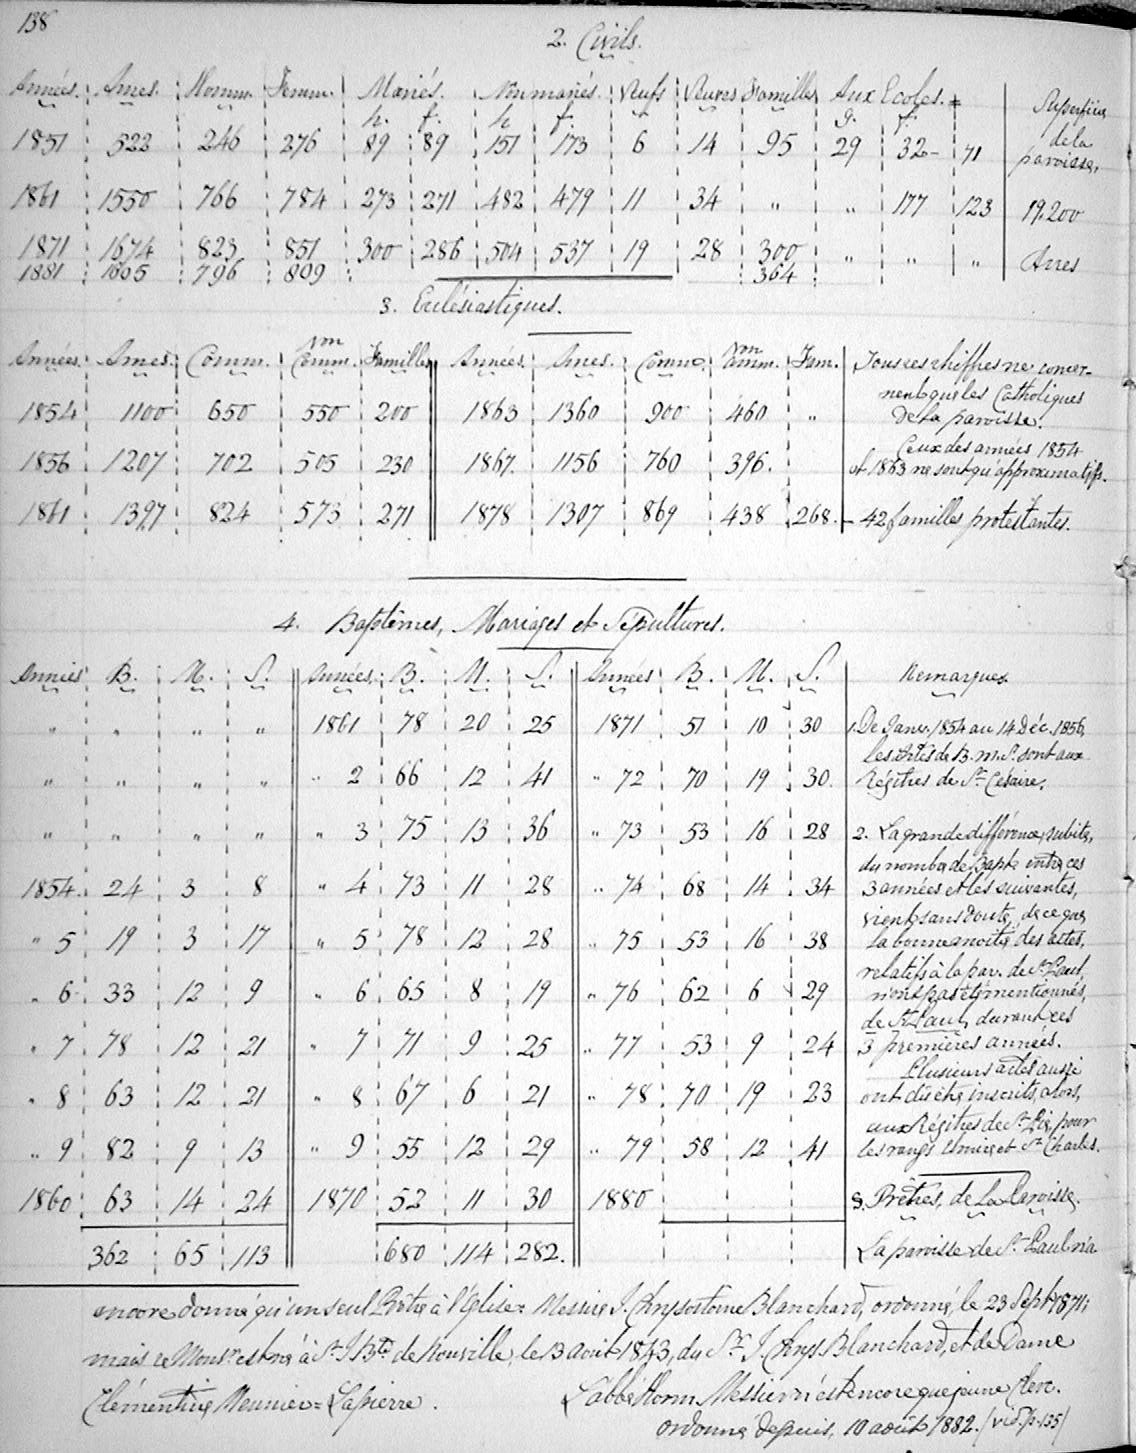 138
2. Civils.
Années. Ames. Homm. Femm. Mariés. Non mariés. Veufs Veuves Familles Aux Ecoles. Superficie
h. f. h f. g. f. de la
1851 522 246 276 89 89 151 173 6 14 95 29 32 - 71 paroisse,
1861 1550 766 784 273 271 482 479 11 34 " " 177 123 19,200
1871 1674 823 851 300 286 504 537 19 28 300 " " " Acres
1881 1605 796 809 364
3. Ecclésiastiques.
Années. Ames. Comm. non Comm. Familles Années. Ames. Comm. non Comm. Fam. Tous ces chiffres ne concer-
nent que les Catholiques
1854 1100 650 550 200 1863 1360 900 460 " de la paroisse.
Ceux des années 1854
1856 1207 702 505 230 1867. 1156 760 396. et 1863 ne sont qu'approximatifs.
1861 1397 824 573 271 1878 1307 869 438 268. - 42 familles protestantes.
4. Baptêmes, Mariages et Sépultures.
Années B. M. S. Années. B. M. S. Années B. M. S. Remarques
" " " " 1861 78 20 25 1871 51 10 30 1. De Janv. 1854 au 14 Déc. 1856,
les Actes de B. m. S. sont aux
" " " " " 2 66 12 41 " 72 70 19 30. Régitres de St Cesaire.
" " " " " 3 75 13 36 " 73 53 16 28 2. La grande différence, subite,
du nombre de Bapt. entre ces
1854. 24 3 8 " 4 73 11 28 " 74 68 14 34 3 années et les suivantes,
vient, sans doute, de ce que
" 5 19 3 17 " 5 78 12 28 " 75 53 16 38 la bonne moitié des actes,
relatifs à la par. de St Paul,
" 6 33 12 9 " 6 65 8 19 " 76 62 6 29 n'ont pas été mentionnés,
de St Paul, durant ces
" 7 78 12 21 " 7 71 9 25 " 77 53 9 24 3 premières années.
Plusieurs actes aussi
" 8 63 12 21 " 8 67 6 21 " 78 70 19 23 ont dû être inscrits, alors,
aux Régitres de St Pie, pour
" 9 82 9 13 " 9 55 12 29 " 79 58 12 41 les rangs et St Charles.
1860 63 14 24 1870 52 11 30 1880 5. Prêtres, de La Paroisse.
362 65 113 680 114 282. La paroisse de St Paul n'a
encore donné qu'un seul Prêtre à l'Eglise: Messire J. Chrysostome Blanchard, ordonné, le 23 Sept 1871;
mais ce Monsr est né à St J. Bte de Rouville, le 13 août 1843, du Sr J. Chrys Blanchard, et de Dame
Clémentine Meunier = Lapierre. L'abbé Horm. Messier n'est encore que jeune Clerc.
ordonné depuis, 10 août 1882. (vid. p. 135)